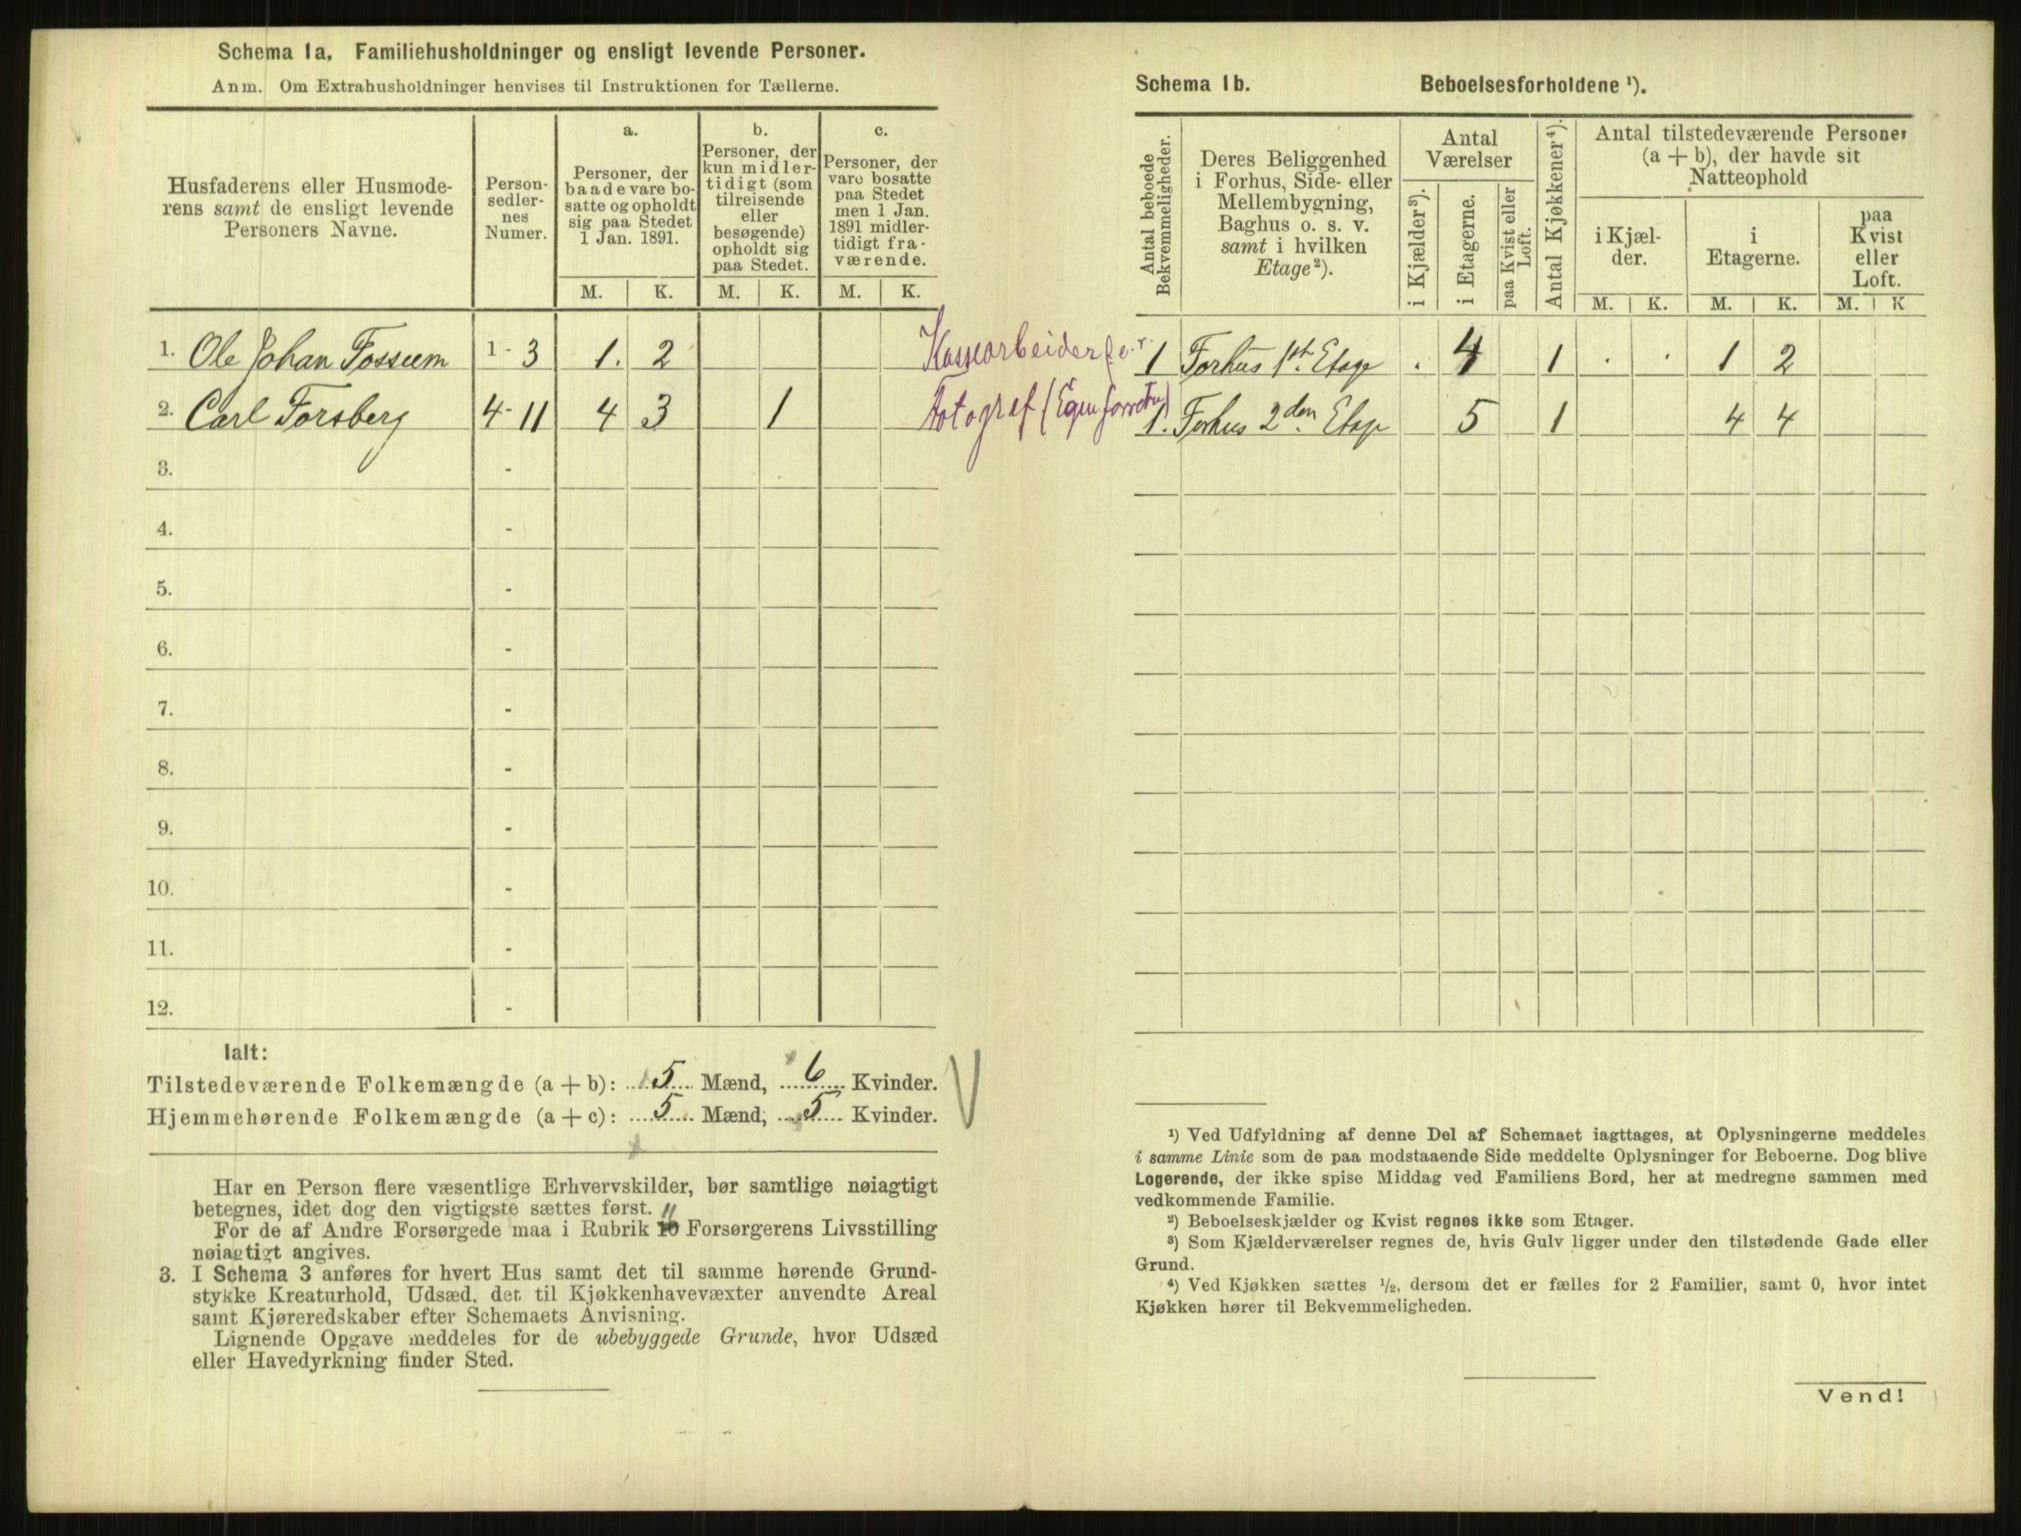 Schema 1a. Familiehusholdninger og ensligt levende Personer.
Anm. Om Extrahusholdninger henvises til Instruktionen for Tællerne.
Husfaderens eller Husmode-
rens samt de ensligt levende
Personers Navne.
Person-
sedler-
nes
Numer.
a.
Personer, der
baade vare bo-
satte og opholdt
sig paa Stedet
1 Jan. 1891.
b.
Personer, der
kun midler-
tidigt (som
tilreisende
eller
besøgende)
opholdt sig
paa Stedet.
c.
Personer, der
vare bosatte
paa Stedet
men 1 Jan.
1891 midler-
tidigt fra-
værende.
M. K. M. K. M. K.
1. Ole Johan Fossum 1 - 3 1. 2
2. Carl Forsberg 4 - 11 4 3 1
3. -
4. -
5. -
6. -
7. -
8. -
9. -
10. -
11. -
12. -
Ialt:
Tilstedeværende Folkemængde (a + b): 5 Mænd, 6 Kvinder.
Hjemmehørende Folkemængde (a + c): 5 Mænd, 5 Kvinder.
Har en Person flere væsentlige Erhvervskilder, bør samtlige nøiagtigt
betegnes, idet dog den vigtigste sættes først.
For de af Andre Forsørgede maa i Rubrik 11 Forsørgerens Livsstilling
nøiagtigt angives.
3. I Schema 3 anføres for hvert Hus samt det til samme hørende Grund-
stykke Kreaturhold, Udsæd, det til Kjøkkenhavevæxter anvendte Areal
samt Kjøreredskaber efter Schemaets Anvisning.
Lignende Opgave meddeles for de ubebyggede Grunde, hvor Udsæd
eller Havedyrkning finder Sted.
Schema 1b. Beboelsesforholdene ¹).
Antal beboede
Bekvemmeligheder.
Deres Beliggenhed
i Forhus, Side- eller
Mellembygning,
Baghus o. s. v.
samt i hvilken
Etage²).
Antal
Værelser
i Kjælder³).
i Etagerne.
paa Kvist eller
Loft.
Antal Kjøkkener⁴).
Antal tilstedeværende Personer
(a + b), der havde sit
Natteophold
i Kjæl-
der.
i
Etagerne.
paa
Kvist
eller
Loft.
M. K. M. K. M. K
1 Forhus 1st. Etage . 4 1 . . 1 2
Fotograf (Egen
1. Forhus 2den Etage 5 1 4 4
¹) Ved Udfyldning af denne Del af Schemaet iagttages, at Oplysningerne meddeles
i samme Linie som de paa modstaaende Side meddelte Oplysninger for Beboerne. Dog blive
Logerende, der ikke spise Middag ved Familiens Bord, her at medregne sammen med
vedkommende Familie.
²) Beboelseskjælder og Kvist regnes ikke som Etager.
³) Som Kjælderværelser regnes de, hvis Gulv ligger under den tilstødende Gade eller
Grund.
⁴) Ved Kjøkken sættes ½, dersom det er fælles for 2 Familier, samt 0, hvor intet
Kjøkken hører til Bekvemmeligheden.
Vend!